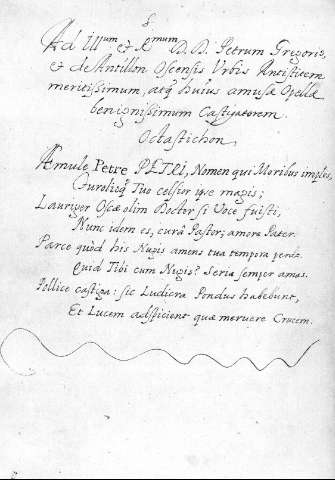 Ad Ill.um et R.mum D. D. Petrum Gregorio,
et de Antillon Oscensis Urbis Antistitem
meritissimum, atq. huius amusæ
benignissimum Castigatorem.
Octastichon.
Æmule Petre PETRI, Nomen qui Moribus imples,
Tuo celsior magis;
Lauriger Oscæ olim Doctor si Voce fuisti,
Nunc idem es, curâ Pastor; amore Pater.
Parce quòd his Nugis amens tua tempora
Quid Tibi cum Nugis? Seria semper amas.
Pollice castiga: sic Ludicra Pondus habebunt,
Et Lucem adspicient quæ meruere Crucem.